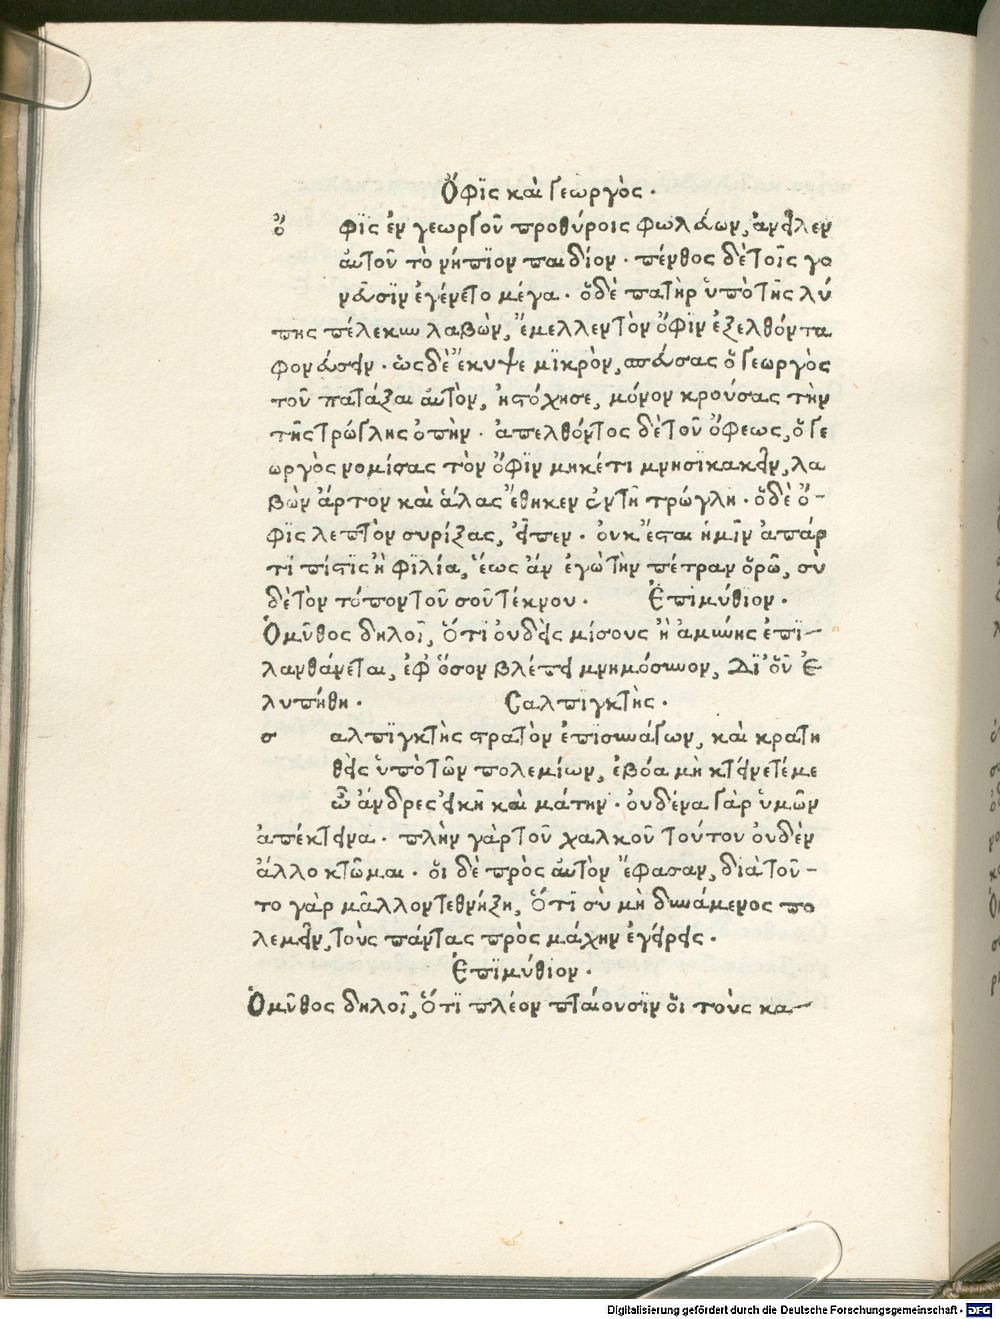 Ὄφις καὶ Γεωργὸς.
ὄ φις ἐν γεωργοῦ προθύροις φωλεύων, ἀνεῖλεν
αὐτοῦ τὸ νήπιον παιδίον. πένθος δὲ τοῖς γο
νεῦσιν ἐγένετο μέγα. ὁ δὲ πατὴρ ὑπὸ τῆς λύ
πης πέλεκυν λαβὼν, ἔμελλεν τὸν ὄφιν ἐξελθόντα
φονεύσειν. ὡς δὲ ἔκυψε μικρὸν, σπεύσας ὁ γεωργὸς
τοῦ πατάξαι αὐτὸν, ἠστόχησε, μόνον κρούσας τὴν
τῆς τρώγλης ὀπὴν. ἀπελθόντος δὲ τοῦ ὄφεως, ὁ γε
ωργὸς νομίσας τὸν ὄφιν μηκέτι μνησικακεῖν, λα
βὼν ἄρτον καὶ ἅλας ἔθηκεν ἐν τῇ τρώγλῃ. ὁ δὲ ὄ-
φις λεπτὸν συρίξας, εἶπεν. οὐκ ἔσται ἡμῖν ἀπάρ
τι πίστις ἢ φιλία, ἕως ἂν ἐγὼ τὴν πέτραν ὁρῶ, σὺ
δὲ τὸν τόπον τοῦ σοῦ τέκνου. Ἐπιμύθιον.
Ὁ μῦθος δηλοῖ, ὅτι οὐδεὶς μίσους ἢ ἀμύνης ἐπι-
λανθάνεται, ἐφ' ὅσον βλέπει μνημόσυνον, δι' οὗ ἐ
λυπήθη. Σαλπιγκτὴς.
σ αλπιγκτὴς στρατὸν ἐπισυνάγων, καὶ κρατη
θεὶς ὑπὸ τῶν πολεμίων, ἐβόα μὴ κτείνετέ με
ὦ ἄνδρες εἰκῆ καὶ μάτην. οὐδένα γὰρ ὑμῶν
ἀπέκτεινα. πλὴν γὰρ τοῦ χαλκοῦ τούτου οὐδὲν
ἄλλο κτῶμαι. οἱ δὲ πρὸς αὐτὸν ἔφασαν, διὰ τοῦ-
το γὰρ μᾶλλον τεθνήξῃ, ὅτι σὺ μὴ δυνάμενος πο
λεμεῖν, τοὺς πάντας πρὸς μάχην ἐγείρεις.
Ἐπιμύθιον.
Ὁ μῦθος δηλοῖ, ὅτι πλέον πταίουσιν οἱ τοὺς κα-
Digitalisierung gefördert durch die Deutsche Forschungsgemeinschaft - DFG